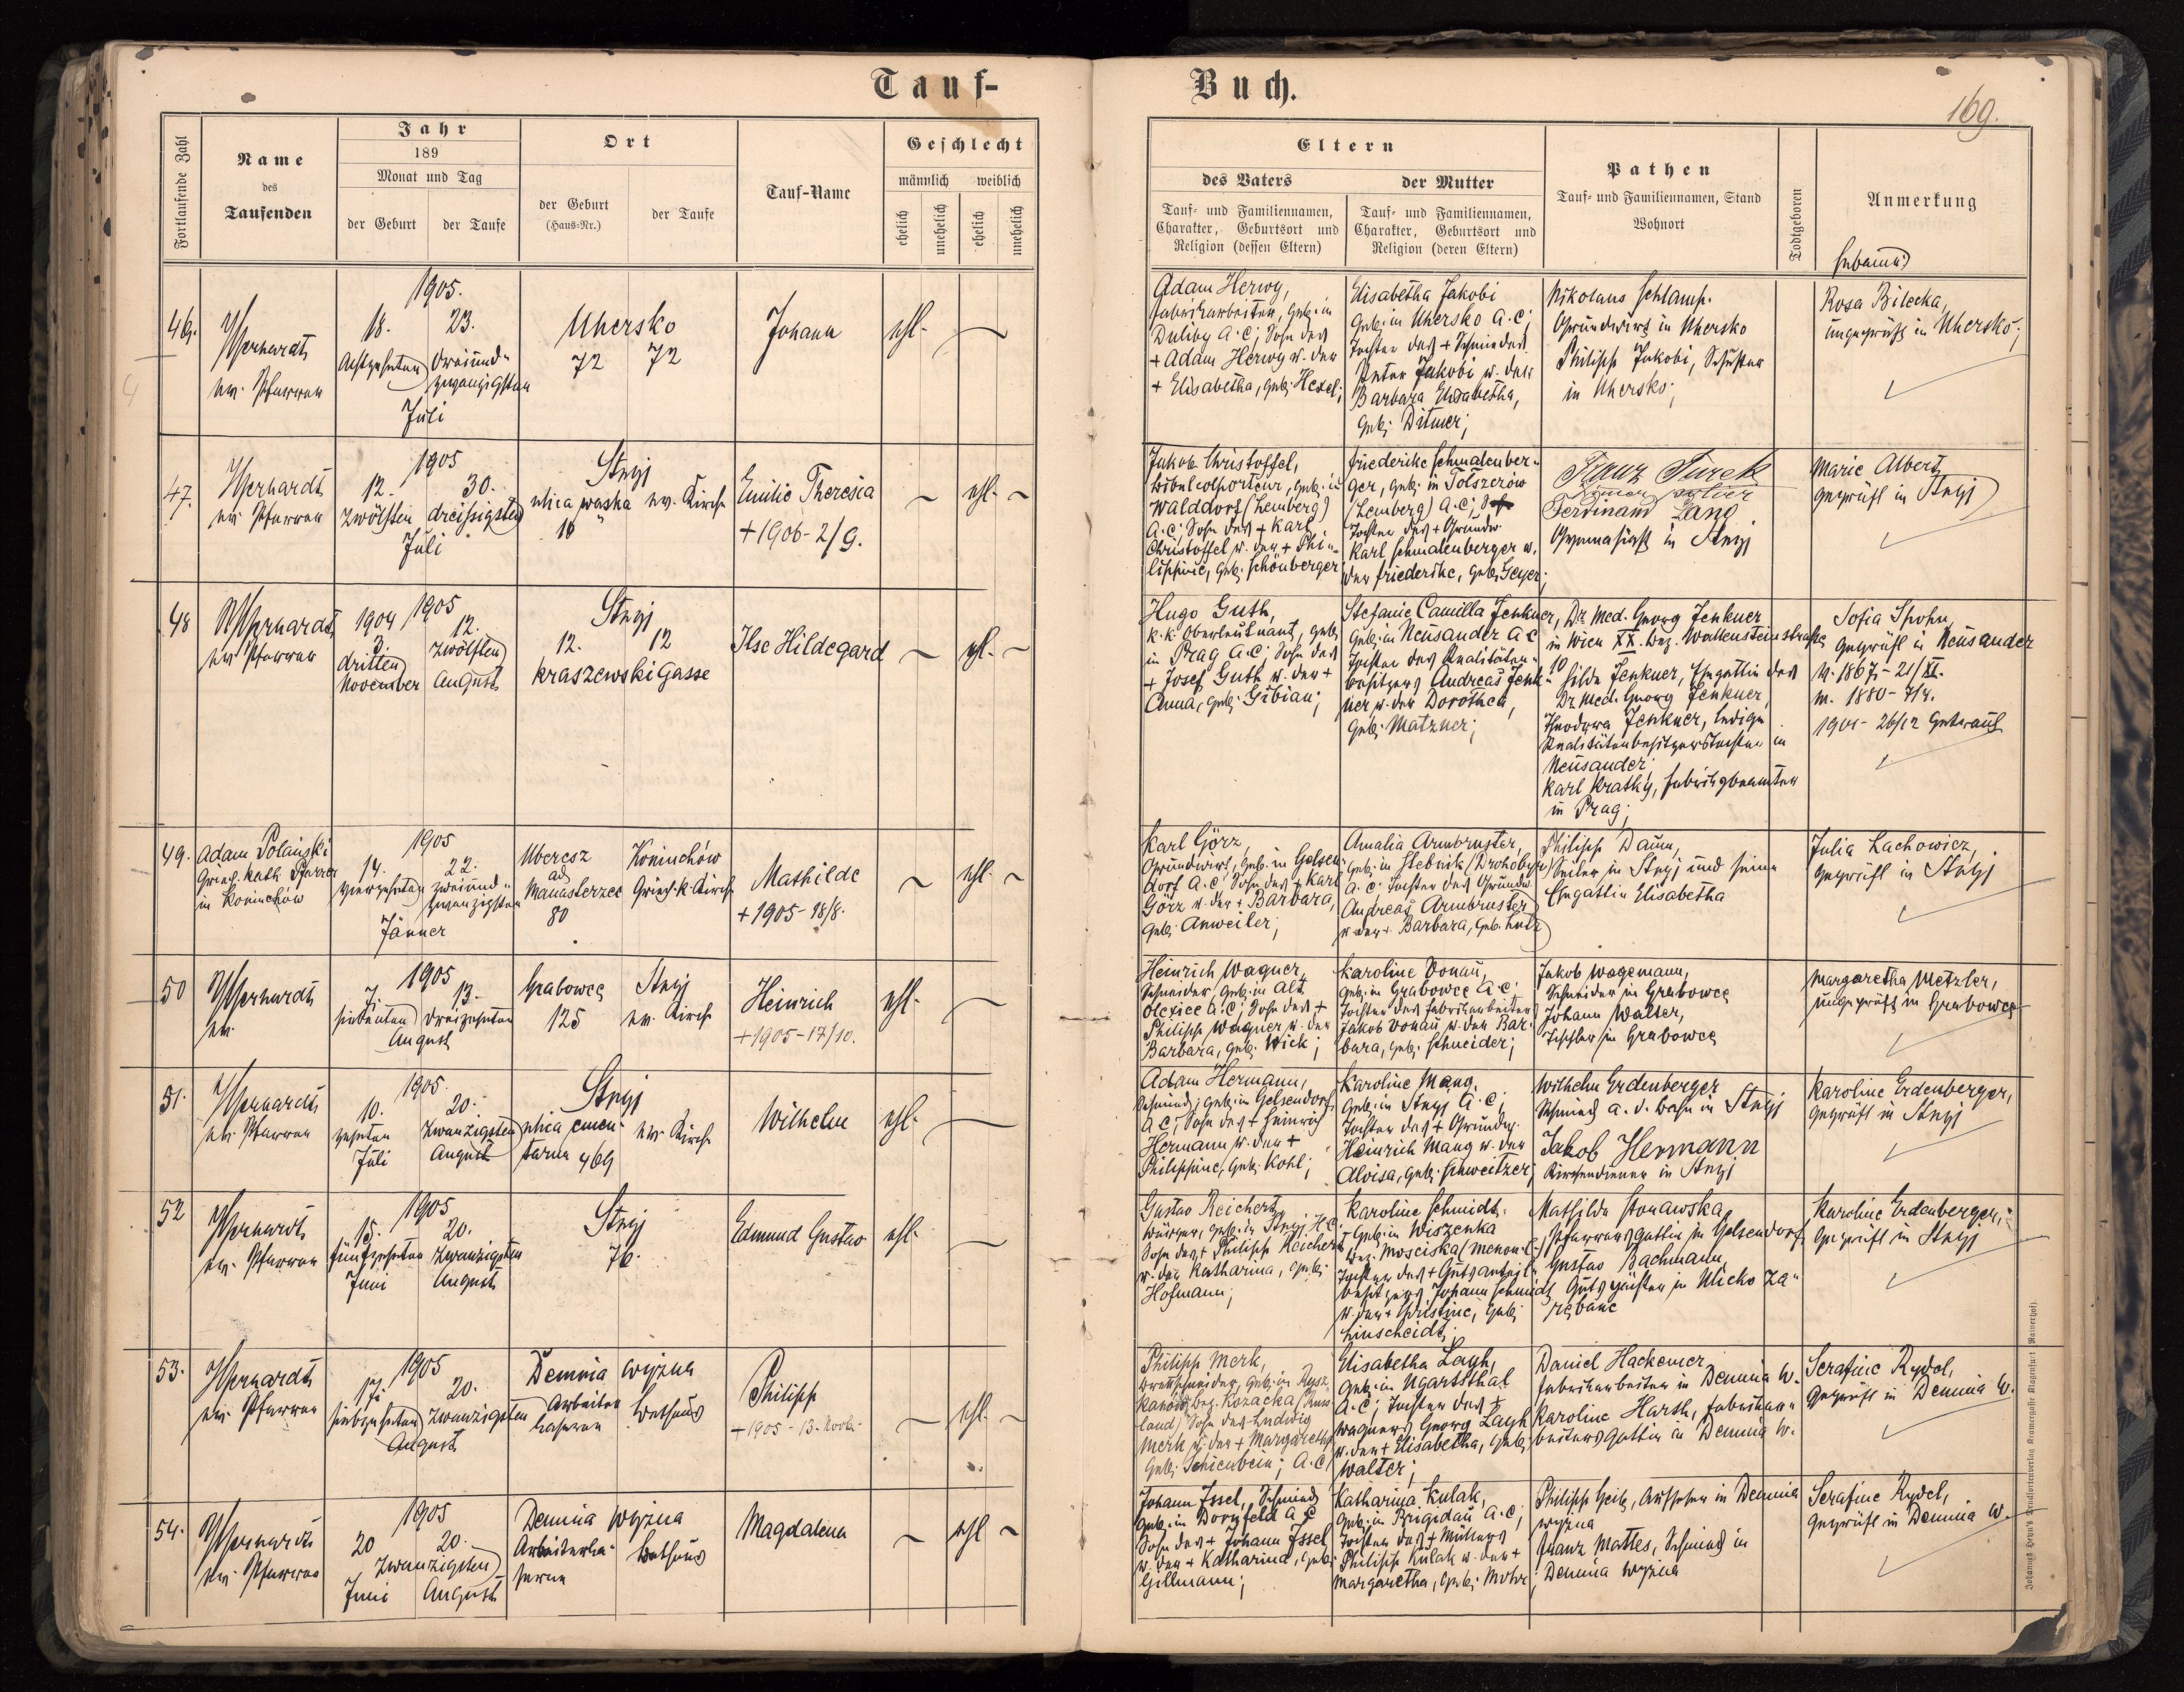 Tauf-
Buch.
169.
Fortlaufende Zahl
Name
des
Taufenden
Jahr
189
Monat und Tag
der Geburt
der Taufe
Ort
der Geburt
(Haus-Nr.)
der Taufe
Tauf-Name
Geschlecht
männlich
weiblich
ehelich
unehelich
ehelich
unehelich
Eltern
des Vaters
der Mutter
Tauf- und Familiennamen,
Charakter, Geburtsort und
Religion (dessen Eltern)
Tauf- und Familiennamen,
Charakter, Geburtsort und
Religion (deren Eltern)
Pathen
Tauf- und Familiennamen, Stand
Wohnort
Todtgeboren
Anmerkung
Hebamme
46.
ev. Pfarrer
1905.
18. 23.
Achtzehnten Dreiund-
zwanzigsten
Juli
Uhersko
72 72
Johann
ehl.
Adam Herwy,
Fabriksarbeiter, geb. in
Duliby A. C; Sohn des
+ Adam Herwy u. der
+ Elisabetha, geb. Hexel;
Elisabetha Jakobi
geb. in Uhersko A. C;
Tochter des + Schmiedes
Peter Jakobi u. der
Barbara Elisabetha,
geb. Ditmer;
Nikolaus Schlamp.
Grundwirt in Uhersko
Philipp Jakobi, Schuster
in Uhersko;
Rosa Bilecka,
ungeprüft in Uhersko;
47.
ev. Pfarrer
1905
12. 30.
zwölften dreißigsten
Juli
Stryj
ulica waska ev. Kirche
10
Emilie Theresia
+ 1906-2/9.
ehl.
Jakob Christoffel,
Bibelcolporteur, geb. in
Walddorf (Lemberg)
A. C; Sohn des + Karl
Christoffel u. der + Phi-
lippine, geb. Schönberger
Friederike Schmalenber-
ger, geb. in Tolszczów
(Lemberg) A. C;
Tochter des + Grundw.
Karl Schmalenberger u.
der Friederike, geb. Geyer;
Franz Turek
Ferdinand Lang
Gymnasiast in Stryj
Marie Albert
geprüft in Stryj
48
ev. Pfarrer
1904 1905
3. 12.
dritten zwölften
November August
Stryj
12. 12
Kraszewski Gasse
Ilse Hildegard
ehl.
Hugo Guth,
k. k. Oberleutnant, geb.
in Prag A. C; Sohn des
+ Josef Guth u. der +
Anna, geb. Gibian;
Stefanie Camilla Jenkner,
geb. in Neusandez A C
Tochter des Realitäten-
besitzers Andreas Jenk-
ner u. der Dorothea,
geb. Matzner;
Dr. Med. Georg Jenkner
in Wien XX. Bez. Wallensteinstraße
10
Hilda Jenkner, Ehegattin des
Dr. Med. Georg Jenkner,
Theodora Jenkner, ledige
Realitätenbesitzerstochter in
Neusandez;
Karl Kratky, Fabriksbeamter
in Prag;
Sofia Spohn,
geprüft in Neusandez
V. 1867-21/XI.
M. 1880-7/4.
1901-26/12 getraut
49.
Adam Polanski
Griech. kath. Pfarrer
in Koniuchów
1905
14. 22.
vierzehnten zweiund-
zwanzigsten
Jänner
Uberesz
ad
Manasterzec
80
Koniuchów
Griech. k. Kirche
Mathilde
+ 1905-18/8.
ehl.
Karl Görz,
Grundwirt, geb. in Gelsen-
dorf A. C; Sohn des + Karl
Görz u. der + Barbara,
geb. Anweiler;
Amalia Armbruster,
geb. in Stebnik (Drohobycz)
A. C; Tochter des Grundw.
Andreas Armbruster
u. der + Barbara, geb. Lutz
Philipp Daum,
Seiler in Stryj und seine
Ehegattin Elisabetha
Julia Lachowicz,
geprüft in Stryj
50
ev.
1905
7. 13.
siebenten dreizehnten
August
Grabowce
125
Stryj
ev. Kirche
Heinrich
+ 1905-17/10.
ehl.
Heinrich Wagner,
Schneider, geb. in Alt
Olexice A. C; Sohn des +
Philipp Wagner u. der
Barbara, geb. Wick;
Karoline Donau,
geb. in Grabowce A. C;
Tochter des Fabriksarbeiters
Jakob Donau u. der Bar-
bara, geb. Schneider;
Jakob Wagemann,
Schneider in Grabowce
Johann Walter,
Tischler in Grabowce
Margaretha Metzler,
ungeprüft in Grabowce
51.
ev. Pfarrer
1905.
10. 20.
zehnten zwanzigsten
Juli August
Stryj
ulica cmen-
tarna 469
ev. Kirche
Wilhelm
ehl.
Adam Hermann,
Schmied; geb. in Gelsendorf,
A C; Sohn des + Heinrich
Hermann u. der +
Philippine, geb. Kohl;
Karoline Mang.
geb. in Stryj A. C;
Tochter des + Grundw.
Heinrich Mang u. der
Aloisa, geb. Schweitzer;
Wilhelm Erdenberger
Schmied a. d. Bahn in Stryj
Jakob Hermann
Kirchendiener in Stryj
Karoline Erdenberger,
geprüft in Stryj
52
ev. Pfarrer
1905
15. 20.
fünfzehnten zwanzigsten
Juni August
Stryj
76.
Edmund Gustav
ehl.
Gustav Reichert,
geb. in Stryj H. C.
Sohn des + Philipp Reichert
u. der Katharina, geb.
Hofmann;
Karoline Schmidt.
geb. in Wiszenka
Bez. Mosciska (Menon. C.)
Tochter des + Gutsanteil-
besitzers Johann Schmidt
u. der + Christine, geb.
Linscheidt;
Mathilde Stonawska,
Pfarrersgattin in Gelsendorf,
Gustav Bachmann,
Gutspächter in Ulicko Za-
rębane
Karoline Erdenberger,
geprüft in Stryj
53.
ev. Pfarrer
1905
17. 20.
siebzehnten zwanzigsten
August
Demnia wyżna
Arbeiter
kaserne
Bethaus
Philipp
+ 1905-13. Novb.
ehl.
Philipp Merk,
Brettschneider, geb. in Rysz
kanów, Bez. Kozacka (Russ
land) Sohn des Ludwig
Merk u. der + Margaretha
geb. Schienbein; A. C.
Elisabetha Lagh,
geb. in Ugartsthal
A. C; Tochter des +
Wagners Georg Lagh
u. der + Elisabetha, geb.
Walter;
Daniel Hackemer,
Fabriksarbeiter in Demnia W.
Karoline Harth, Fabriksar-
beitersgattin in Demnia W.
Serafine Rydel,
geprüft in Demnia W.
54.
ev. Pfarrer
1905
20 20.
Zwanzigsten
Juni August
Demnia wyżna
Arbeiterka-
serne
Bethaus
Magdalena
ehl
Johann Issel, Schmied
geb. in Dornfeld A. C
Sohn des + Johann Issel
u. der + Katharina, geb.
Gillmann;
Katharina Kulak,
geb. in Brigidau A. C;
Tochter des + Müllers
Philipp Kulak u. der +
Margaretha, geb. Mohr;
Philipp Geib, Aufseher in Demnia
wyżna
Franz Mattes, Schmied in
Demnia wyżna
Serafine Rydel,
geprüft in Demnia W.